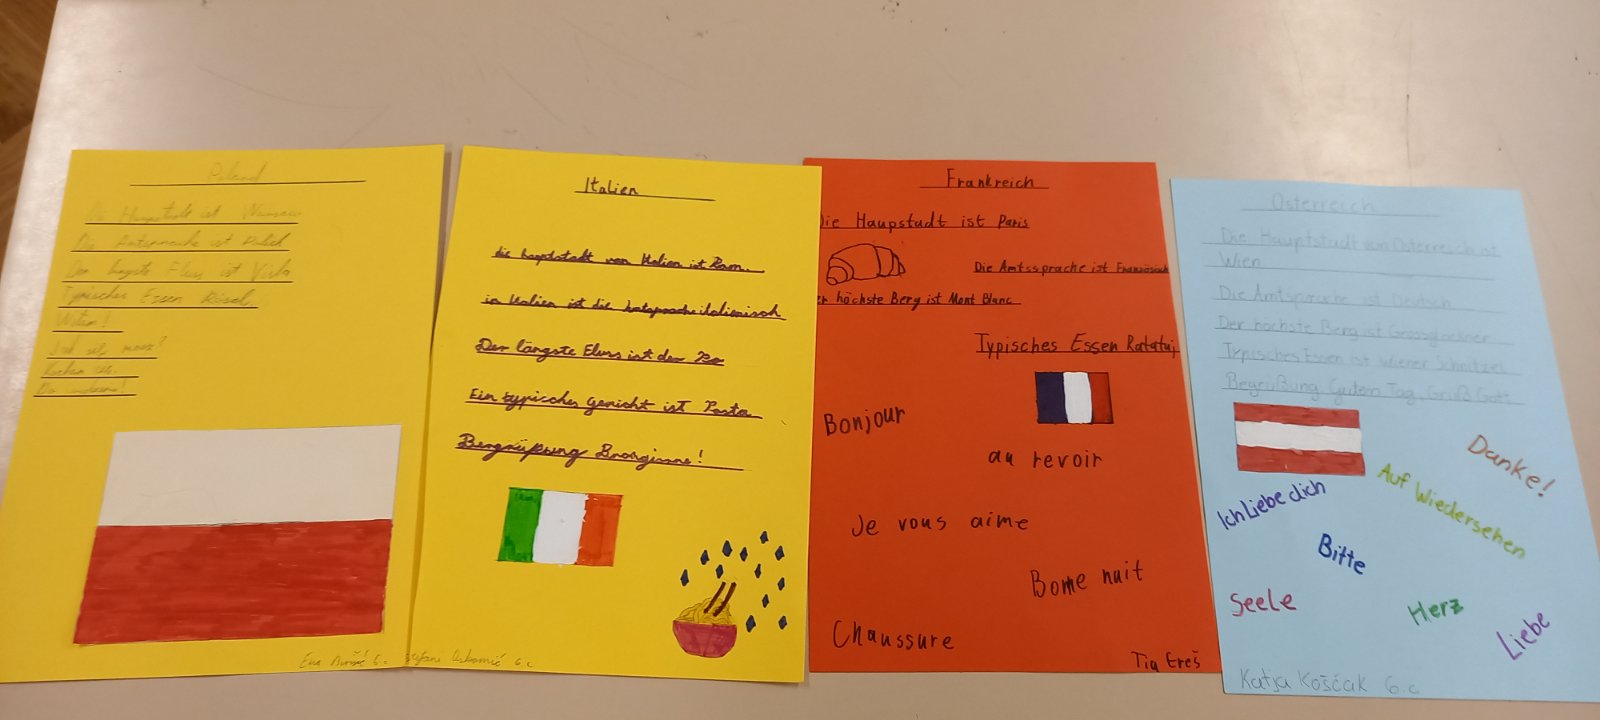 Poland
Hauptstadt ist Warsaw
Die Amtsprache ist Polish
Der längste Fluss ist Visla
Typisches Essen Rosol.
Witam!
Jak się masz?
Kocham cię.
Do widzenia!
Italien
die hauptstatt von Italien ist Rom.
in Italien ist die Amtsprache italienisch
Der längste Fluss ist der Po
Ein typisches gericht ist Pasta
6.c
Stefani 6.c
Frankreich
Die Haupstadt ist Paris
Die Amtssprache ist Französisch
er höchste Berg ist Mont Blanc
Typisches Essen Ratatuj
Bonjour
au revoir
Je vous aime
Bonne nuit
Chaussure
Tia Ereš
Österreich
Die Hauptstadt von Österreich ist
Wien
Die Amtsprache ist Deutsch
Der höchste Berg ist Grossglockner
Typisches Essen ist Wiener Schnitzel
Begrüßung Gutem Tag, Grüß Gott
Danke!
Auf Wiedersehen
Ich Liebe dich
Bitte
Seele
Herz
Liebe
Katja Koščak 6.c